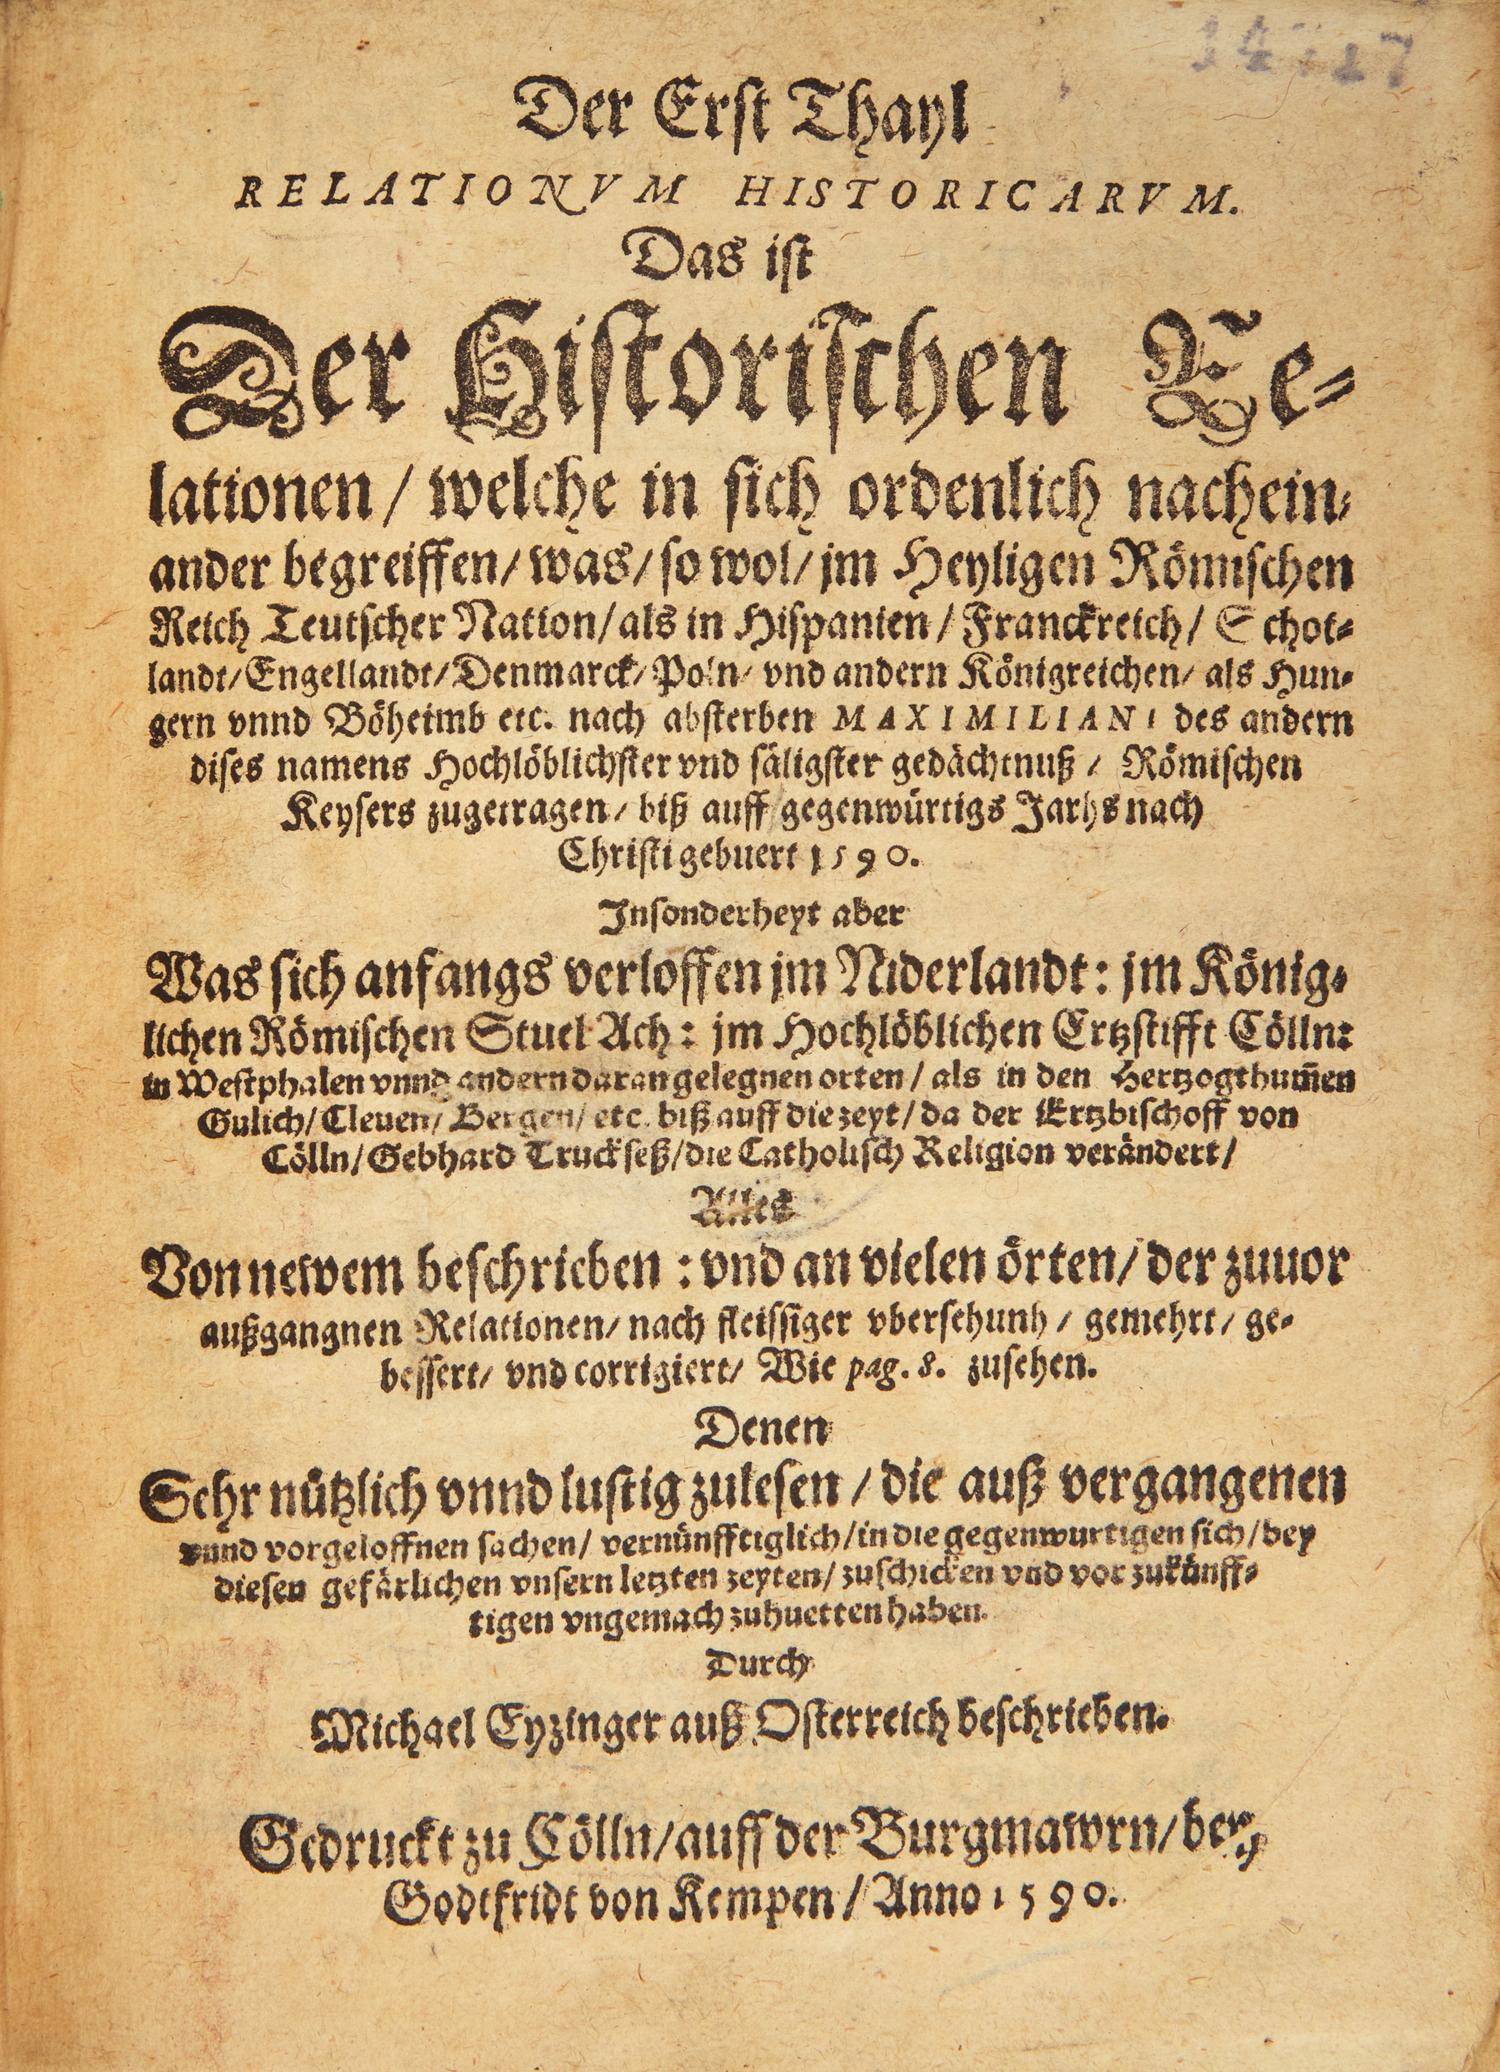 Der Erst Thayl
RELATIONVM HISTORICARVM.
Das ist
Der Historischen Re-
lationen/ welche in sich ordenlich nachein-
ander begreiffen/ was/ so wol/ jm Heyligen Römischen
Reich Teutscher Nation/ als in Hispanien/ Franckreich/ Schot-
landt/ Engellandt/ Denmarck/ Poln/ vnd andern Königreichen/ als Hun-
gern vnnd Böheimb etc. nach absterben MAXIMILIANI des andern
dises namens Hochlöblichster vnd säligster gedächtnuß/ Römischen
Keysers zugetragen/ biß auff gegenwürtigs Jarhs nach
Christi gebuert 1590.
Insonderheyt aber
Was sich anfangs verloffen jm Niderlandt: jm König-
lichen Römischen Stuel Ach: jm Hochlöblichen Ertzstifft Cölln:
in Westphalen vnnd andern daran gelegnen orten/ als in den Hertzogthum̄en
Gulich/ Cleuen/ Bergen/ etc. biß auff die zeyt/ da der Ertzbischoff von
Cölln/ Gebhard Truckseß/ die Catholisch Religion verändert/
Alles
Von newem beschrieben: vnd an vielen örten/ der zuuor
außgangnen Relationen/ nach fleissiger vbersehunh/ gemehrt/ ge-
bessert/ vnd corrigiert/ Wie pag. 8. zusehen.
Denen
Sehr nützlich vnnd lustig zulesen/ die auß vergangenen
vnnd vorgeloffnen sachen/ vernünfftiglich/ in die gegenwurtigen sich/ bey
diesen gefärlichen vnsern letzten zeyten/ zuschicken vnd vor zukünff-
tigen vngemach zuhuetten haben.
Durch
Michael Eyzinger auß Osterreich beschrieben.
Gedruckt zu Cölln/ auff der Burgmawrn/ bey
Godtfridt von Kempen/ Anno 1590.